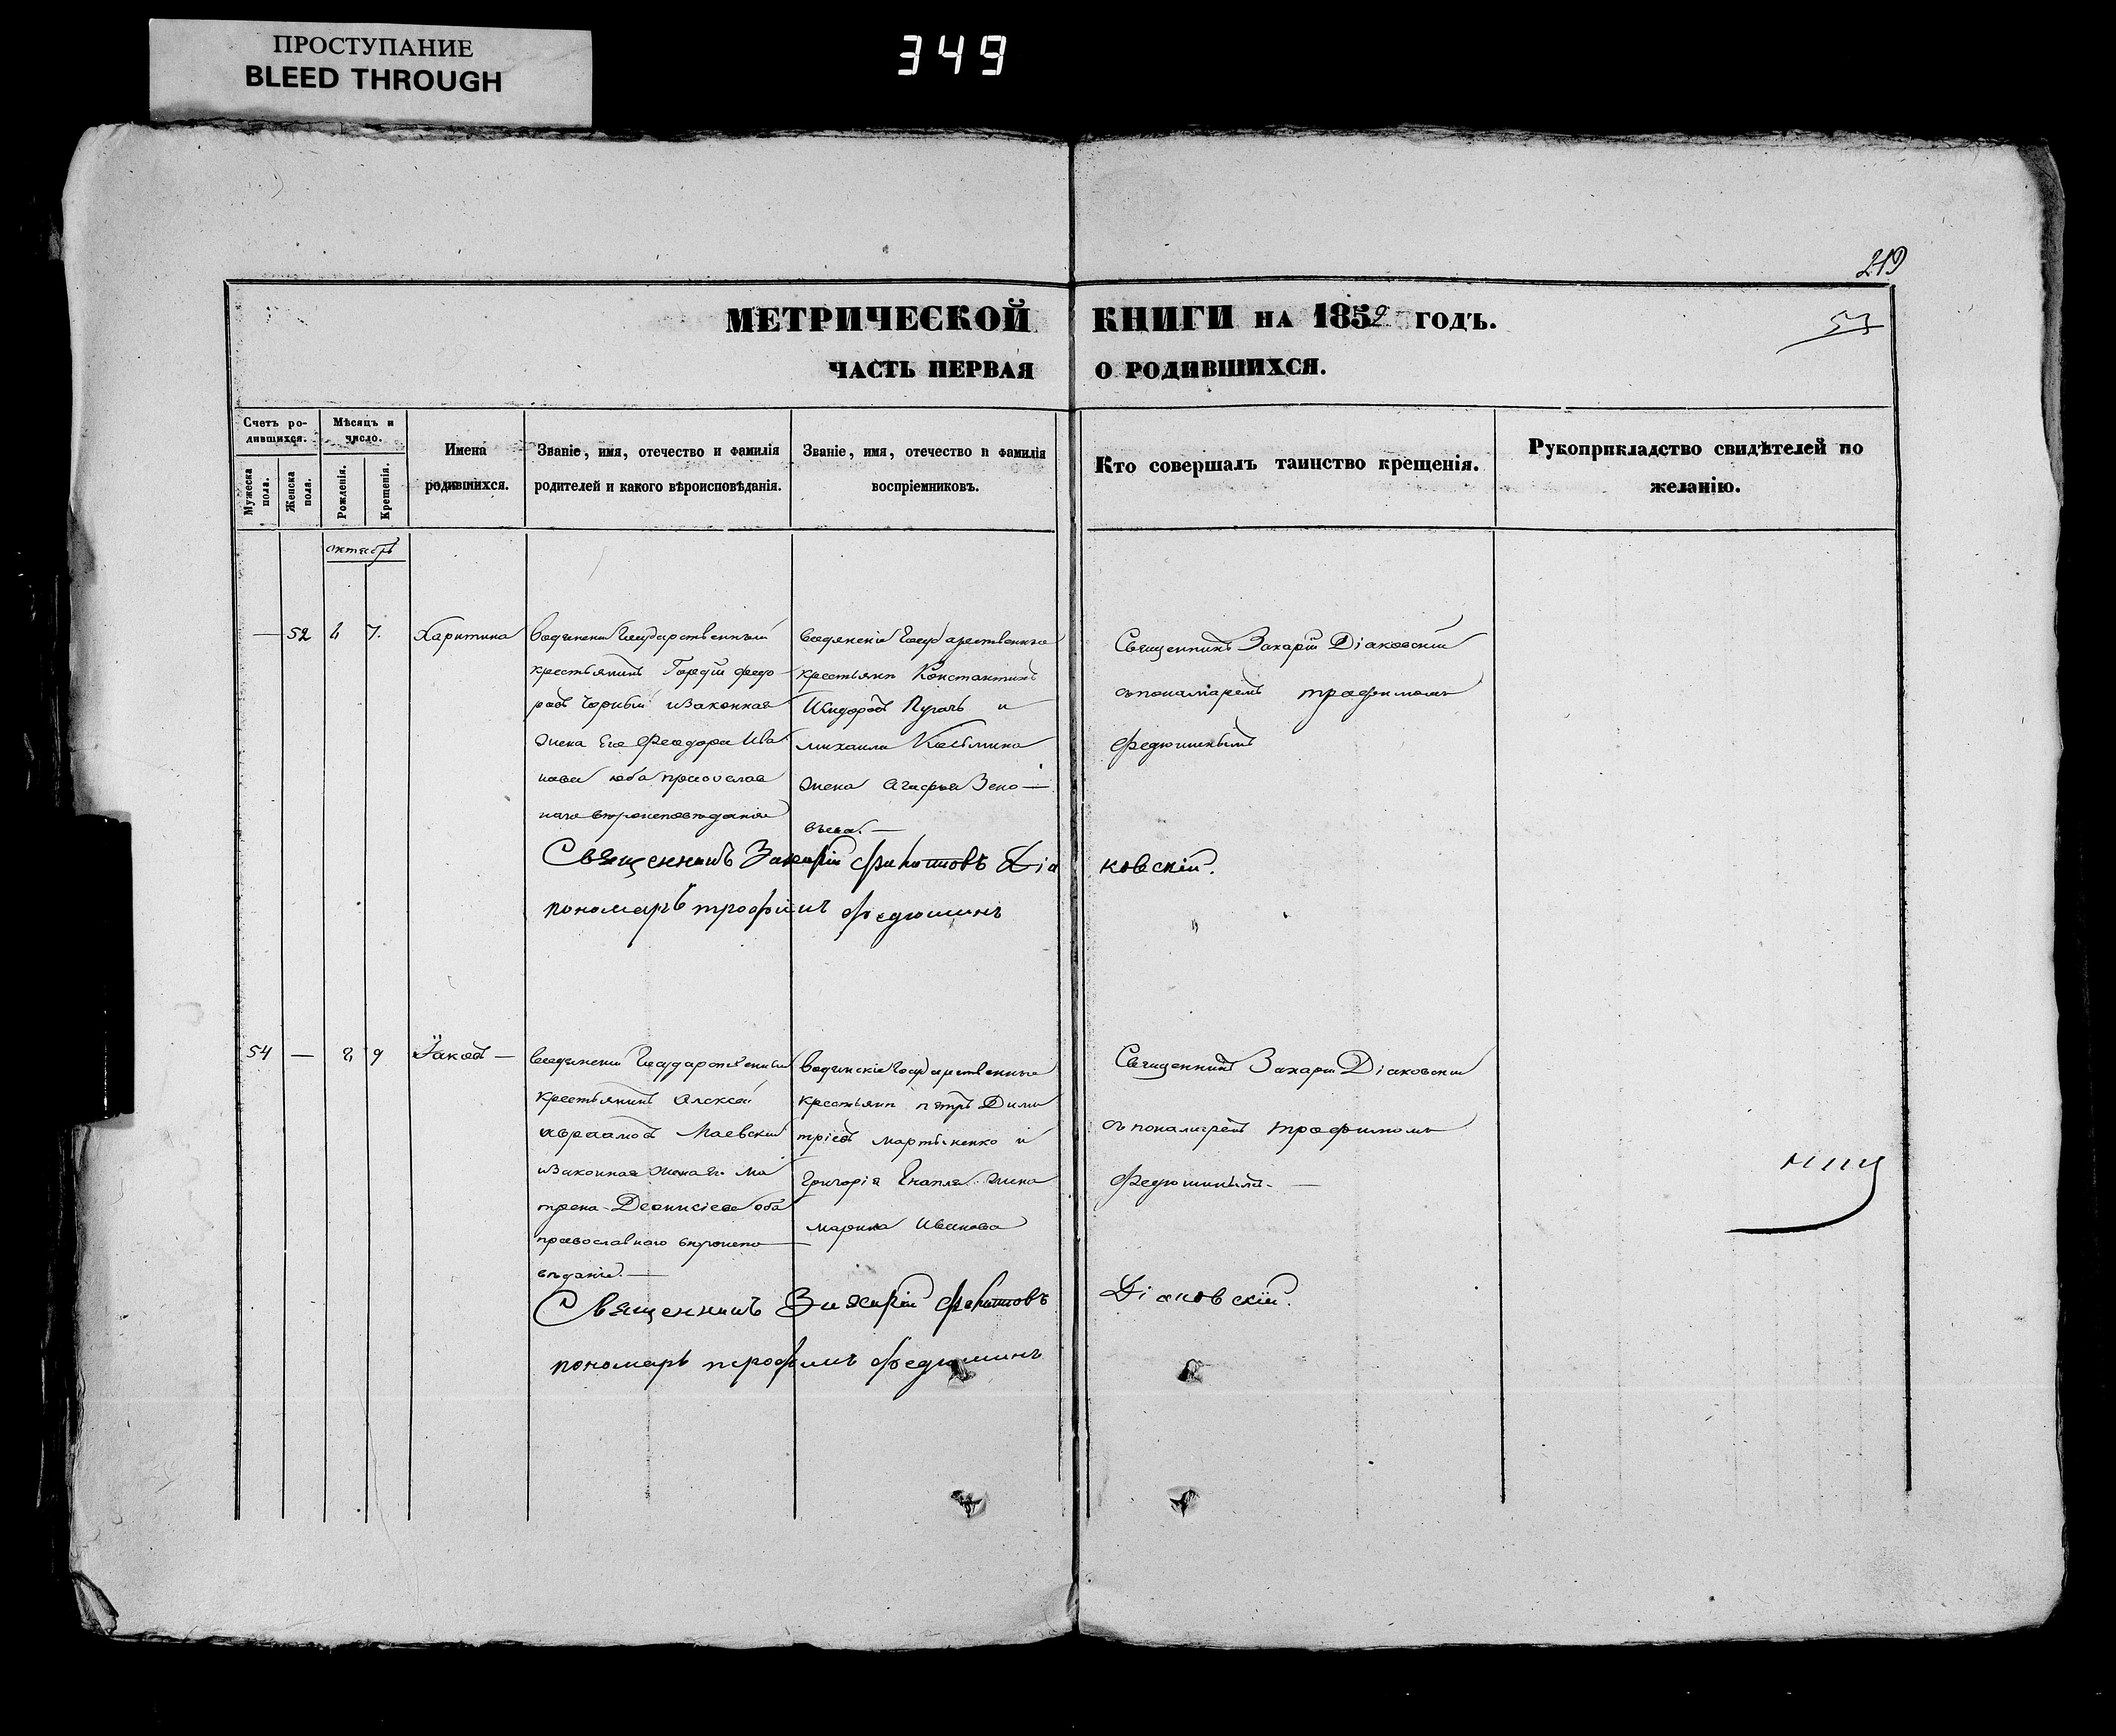 ПРОСТУПАНИЕ
BLEED THROUGH
349
219
МЕТРИЧЕСКОЙ КНИГИ НА 1852 ГОДЪ.
57
ЧАСТЬ ПЕРВАЯ О РОДИВШИХСЯ.
Счетъ ро-
дившихся.
Мужеска пола.
Женска пола.
Мѣсяцъ и
число.
Рожденія.
Крещенія.
Имена
родившихся.
Званіе, имя, отечество и фамилія
родителей и какого вѣроисповѣданія.
Званіе, имя, отечество и фамилія
воспріемниковъ.
Кто совершалъ таинство крещенія.
Рукоприкладство свидѣтелей по
желанію.
октябрь
— 52 4 7. Харитина
государственный
крестьянинъ Гордій федо
ровъ Чорный изаконная
жена Его Феодора Ива
нова оба православ
наго вѣроисповѣданія
государственные
крестьяне Константинъ
Исидоровъ Пугачь и
михаила Косьмина
жена Агафья Зено—
вьева.—
Священникъ Захарій Діаковскій
съ пономаремъ трофимомъ
Федюшинымъ
Священникъ Захарій Филиповъ Діаковскій.
пономарь трофимъ федюшинъ
54 — 8 9 Іаковъ —
государственный
крестьянинъ Алексей
авраамовъ Маевскій
изаконная жена его Ма
трона Деонисіева оба
православнаго вѣроиспо
вѣданія.—
государственные
крестьяне петръ Дими
тріевъ мартыненко и
Григорія жена
марина Иванова
Священникъ Захарій Діаковскій
съ пономаремъ трофимомъ
Федюшинымъ. —
Священникъ Захарій Филиповъ Діаковскій.
пономарь трофимъ федюшинъ